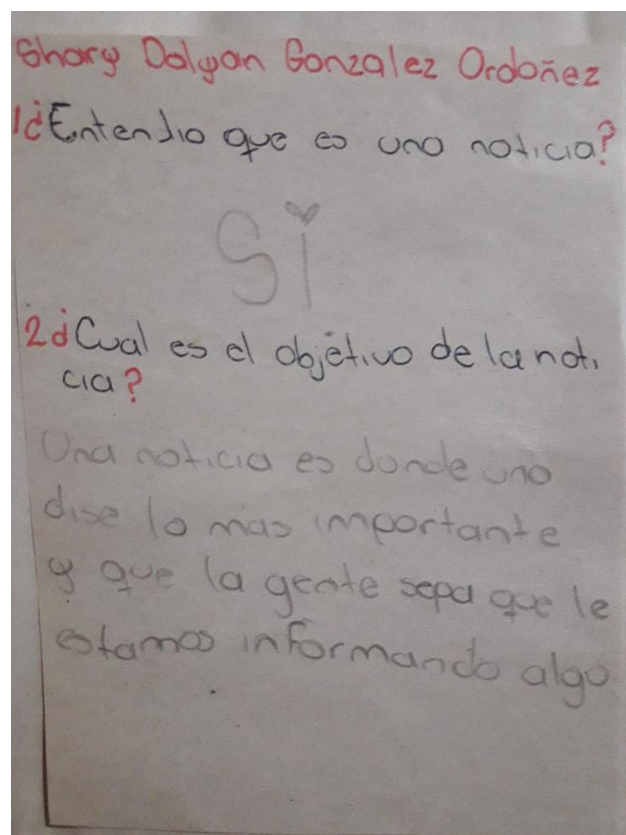 Shary Dalyan Gonzalez Ordoñez
1¿Entendio que es una noticia?
Si
2¿Cual es el objetivo de la noti
cia?
Una noticia es donde uno
dise lo mas importante
y que la gente sepa que le
estamos informando algo